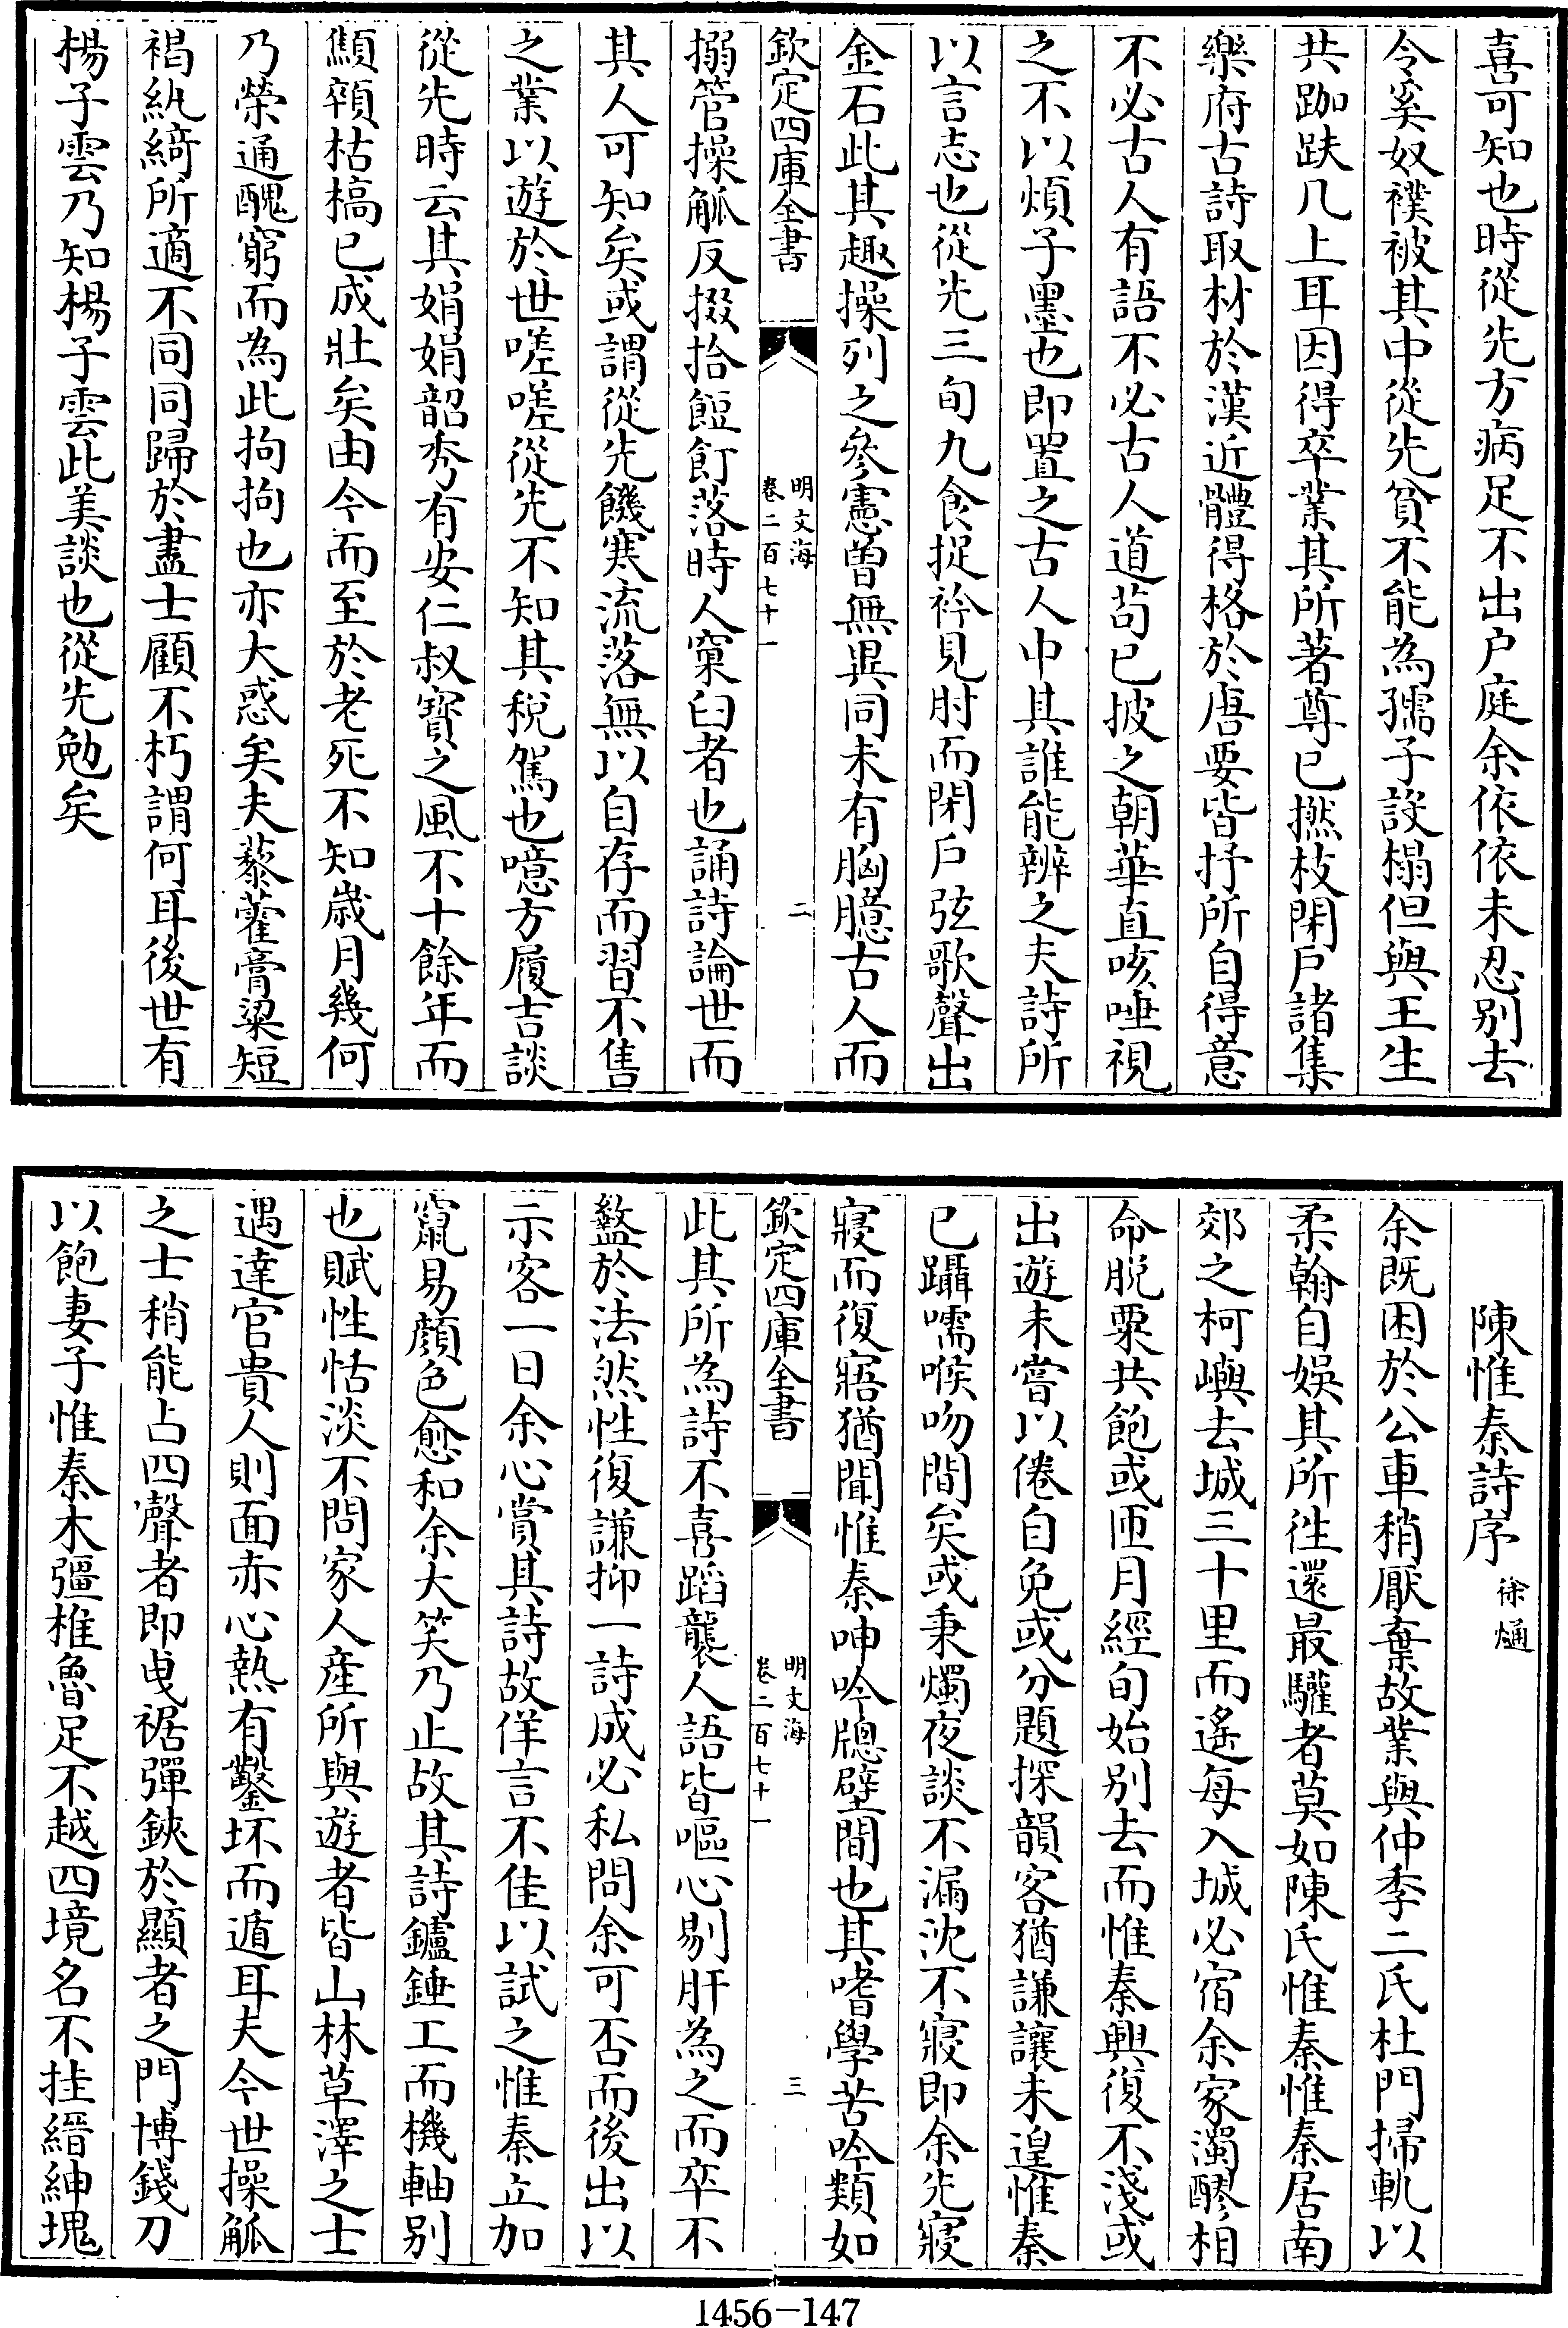 喜可知也時從先方病足不出户庭余依依未忍别去
令奚奴襆被其中從先貧不能為孺子設榻但與王生
共跏趺几上耳因得卒業其所著尊已撚枝閉戸諸集
樂府古詩取材於漢近體得格於唐要皆抒所自得意
不必古人有語不必古人道茍已披之朝華直咳唾視
之不以煩子墨也即置之古人中其誰能辨之夫詩所
以言志也從先三旬九食捉衿見肘而閉户弦歌聲出
金石此其趣操列之參憲曽無異同未有胸臆古人而
欽定四庫全書
明文海
卷二百七十一
二
搦管操觚反掇拾餖飣落時人窠臼者也誦詩論世而
其人可知矣或謂從先饑寒流落無以自存而習不售
之業以遊於世嗟嗟從先不知其税駕也噫方履吉談
從先時云其娟娟韶秀有安仁叔寳之風不十餘年而
顦顇枯槁已成壯矣由今而至於老死不知嵗月幾何
乃榮通醜窮而為此拘拘也亦大惑矣夫藜藿膏粱短
褐紈綺所適不同同歸於盡士顧不朽謂何耳後世有
楊子雲乃知楊子雲此美談也從先勉矣
陳惟秦詩序
徐𤊹
余既困於公車稍厭棄故業與仲季二氏杜門掃軌以
柔翰自娱其所徃還最驩者莫如陳氏惟秦惟秦居南
郊之柯嶼去城三十里而遙每入城必宿余家濁醪相
命脱粟共飽或匝月經旬始别去而惟秦興復不淺或
出遊未嘗以倦自免或分題探韻客猶謙讓未遑惟秦
已躡嚅喉吻間矣或秉燭夜談不漏沈不寢即余先寢
寢而復寤猶聞惟秦呻吟牕壁間也其嗜學苦吟類如
欽定四庫全書
明文海
卷二百七十一
三
此其所為詩不喜蹈襲人語皆嘔心剔肝為之而卒不
盭於法然性復謙抑一詩成必私問余可否而後出以
示客一日余心賞其詩故佯言不佳以試之惟秦立加
竄易顔色愈和余大笑乃止故其詩鑪錘工而機軸别
也賦性恬淡不問家人産所與遊者皆山林草澤之士
遇達官貴人則面赤心熱有鑿坏而遁耳夫今世操觚
之士稍能占四聲者即曵裾彈鋏於顯者之門博錢刀
以飽妻子惟秦木彊椎魯足不越四境名不挂縉紳塊
1456-147